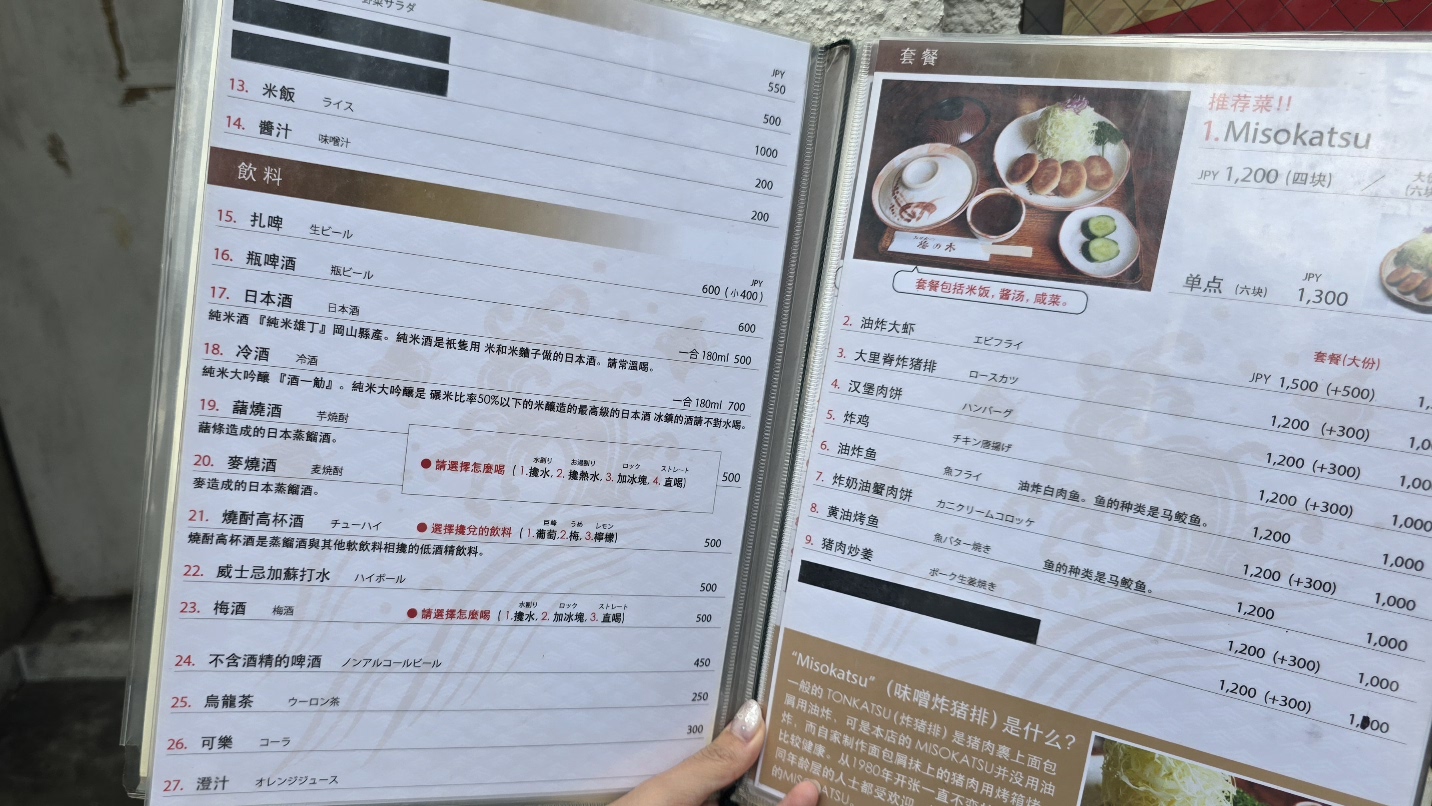 野菜サラダ
JPY
550
500
13. 米飯 ライス 1000
14. 醬汁 味噌汁 200
200
飲料
15. 扎啤 生ビール JPY
600 (小400)
16. 瓶啤酒 瓶ビール 600
17. 日本酒 日本酒 一合180ml 500
純米酒『純米雄丁』岡山縣產。純米酒是祇隻用 米和米麯子做的日本酒。請常溫喝。
18. 冷酒 冷酒 一合180ml 700
純米大吟釀『酒一觔』。純米大吟釀是 碾米比率50%以下的米釀造的最高級的日本酒 冰鎮的酒請不對水喝。
19. 藷燒酒 芋焼酎
藷條造成的日本蒸餾酒。
水割り お湯割り ロック ストレート
● 請選擇怎麼喝 (1.攙水, 2. 攙熱水, 3. 加冰塊, 4. 直喝) 500
20. 麥燒酒 麦焼酎
麥造成的日本蒸餾酒。
巨峰 うめ レモン
21. 燒酎高杯酒 チューハイ ● 選擇攙兌的飲料 (1.葡萄, 2.梅, 3.檸檬) 500
燒酎高杯酒是蒸餾酒與其他軟飲料相攙的低酒精飲料。
22. 威士忌加蘇打水 ハイボール 500
水割り ロック ストレート
23. 梅酒 梅酒 ● 請選擇怎麼喝 (1.攙水, 2. 加冰塊, 3. 直喝) 500
24. 不含酒精的啤酒 ノンアルコールビール 450
25. 烏龍茶 ウーロン茶 250
26. 可樂 コーラ 300
27. 澄汁 オレンジジュース
套餐
推荐菜!!
1.Misokatsu
JPY 1,200 (四块) ／ 大份
(六块
梅の木
套餐包括米饭, 酱汤, 咸菜。
单点 (六块) JPY
1,300
套餐(大份)
2. 油炸大虾 エビフライ JPY 1,500 (+500)
3. 大里脊炸猪排 ロースカツ 1,200 (+300)
4. 汉堡肉饼 ハンバーグ 1,200 (+300)
5. 炸鸡 チキン唐揚げ 1,200 (+300) 1,000
6. 油炸鱼 魚フライ 油炸白肉鱼。鱼的种类是马鲛鱼。 1,200 1,000
7. 炸奶油蟹肉饼 カニクリームコロッケ 1,200 (+300) 1,000
8. 黄油烤鱼 魚バター焼き 鱼的种类是马鲛鱼。 1,200 1,000
9. 猪肉炒姜 ポーク生姜焼き 1,200 (+300) 1,000
1,200 (+300)
“Misokatsu” (味噌炸猪排) 是什么?
一般的 TONKATSU (炸猪排) 是猪肉裹上面包
屑用油炸, 可是本店的 MISOKATSU并没用油
炸, 而自家制作面包屑抹上的猪肉用烤箱烤
比较健康。从1980年开张一直不变
同年龄层的人士都受欢迎